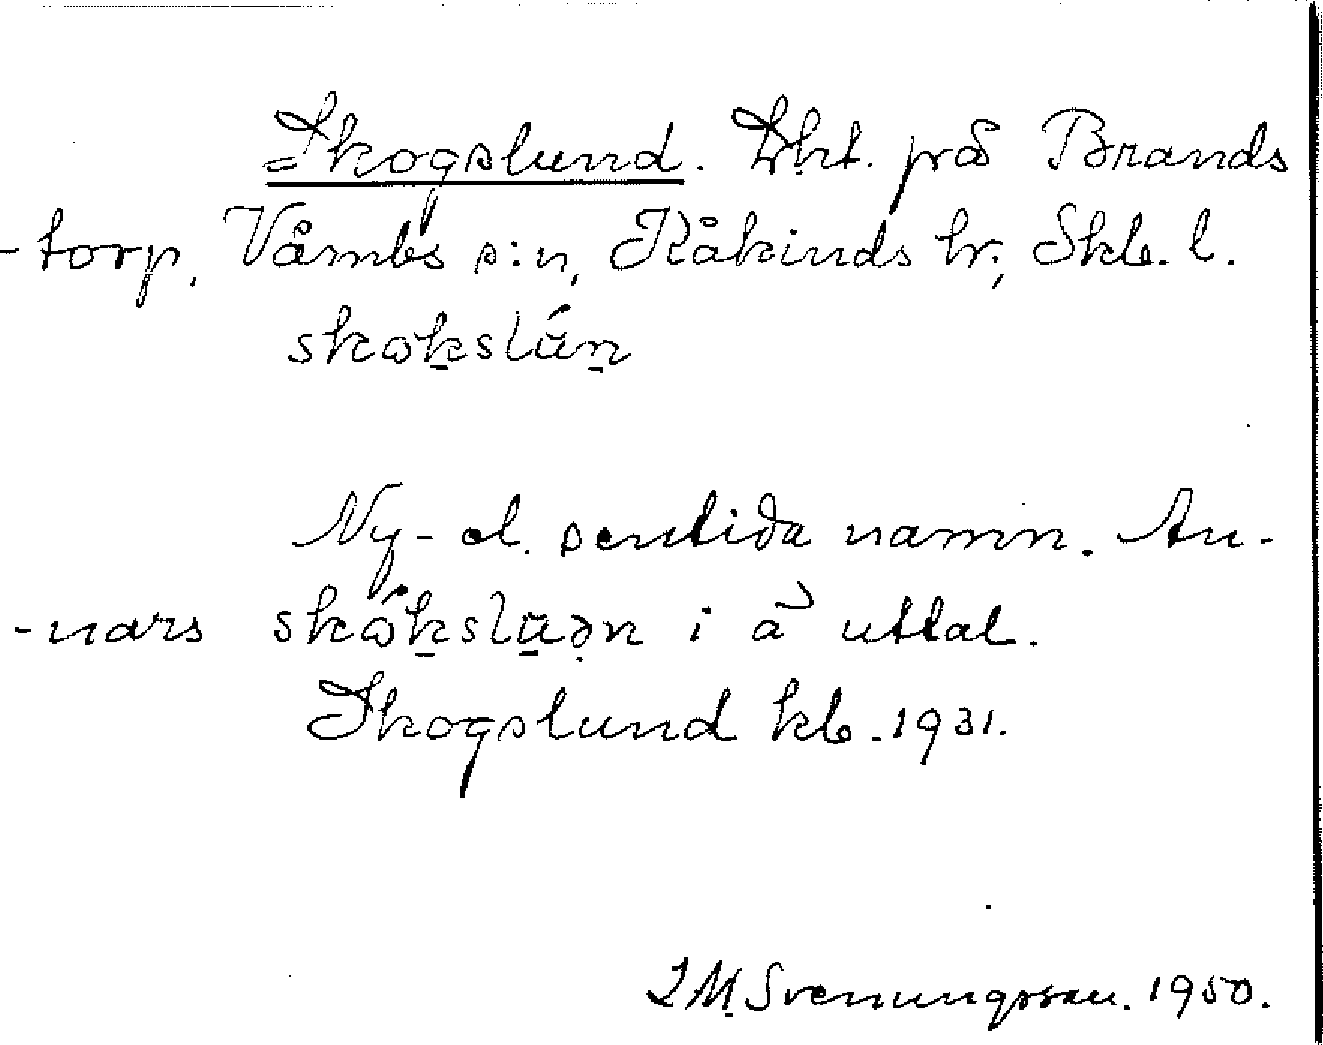 Skogslund. Lht. på Brands
-torp, Våmbs s:n, Kåkinds hr, Skb. l.
skoḵslún̠
Ny- el. sentida namn. An-
-nars skóḵslu̠ən i ä uttal.
Skogslund kb. 1931.
L M Svenungsson. 1950.